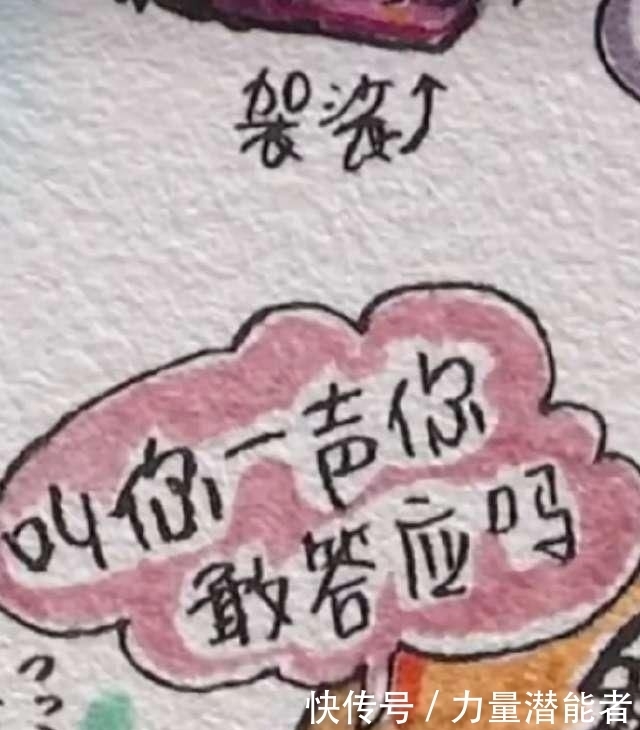 袈裟↑
叫你一声你
敢答应吗
快传号 / 力量潜能者